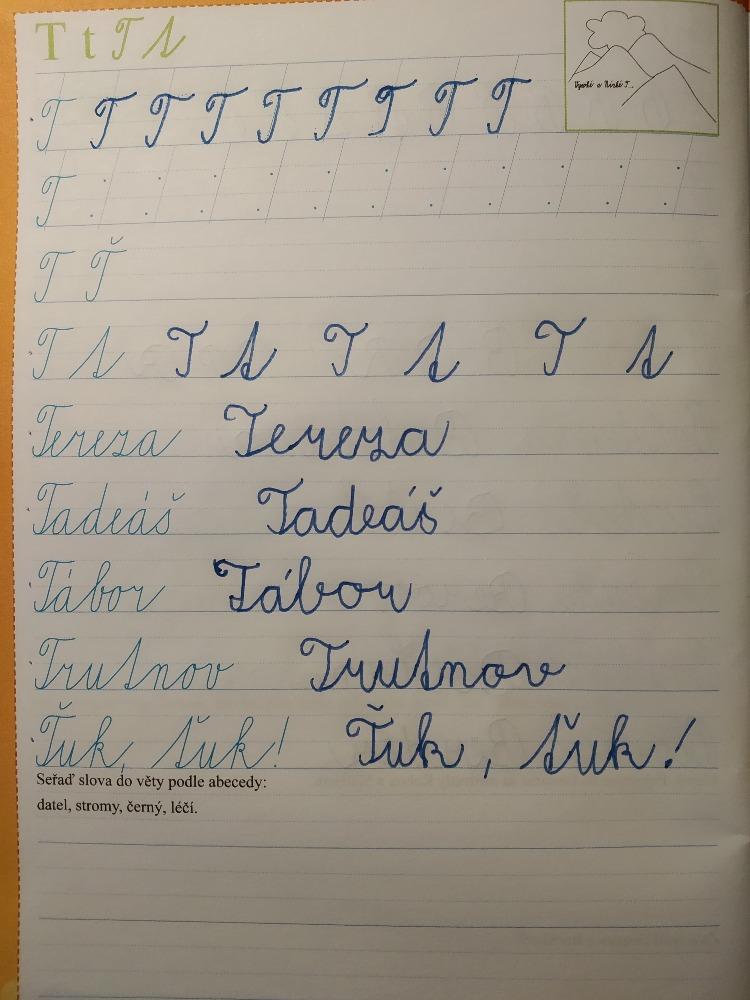 T t T t
Vysoké a Nízké T...
T T T T T T T T T
T
T Ť
T t T t T t T t
Tereza Tereza
Tadeáš Tadeáš
Tábor Tábor
Trutnov Trutnov
Ťuk, ťuk! Ťuk, ťuk!
Seřaď slova do věty podle abecedy:
datel, stromy, černý, léčí.